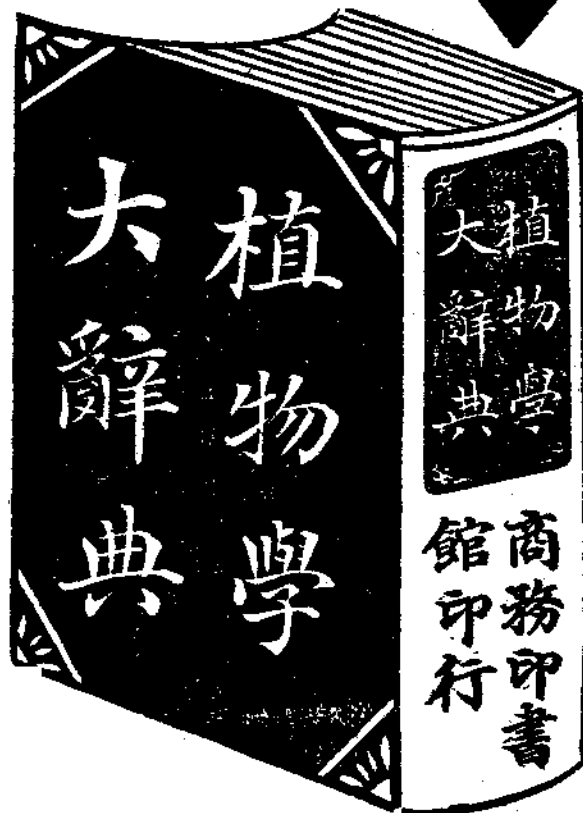 植物學
大辭典
植物學
大辭典
商務印書
館印行